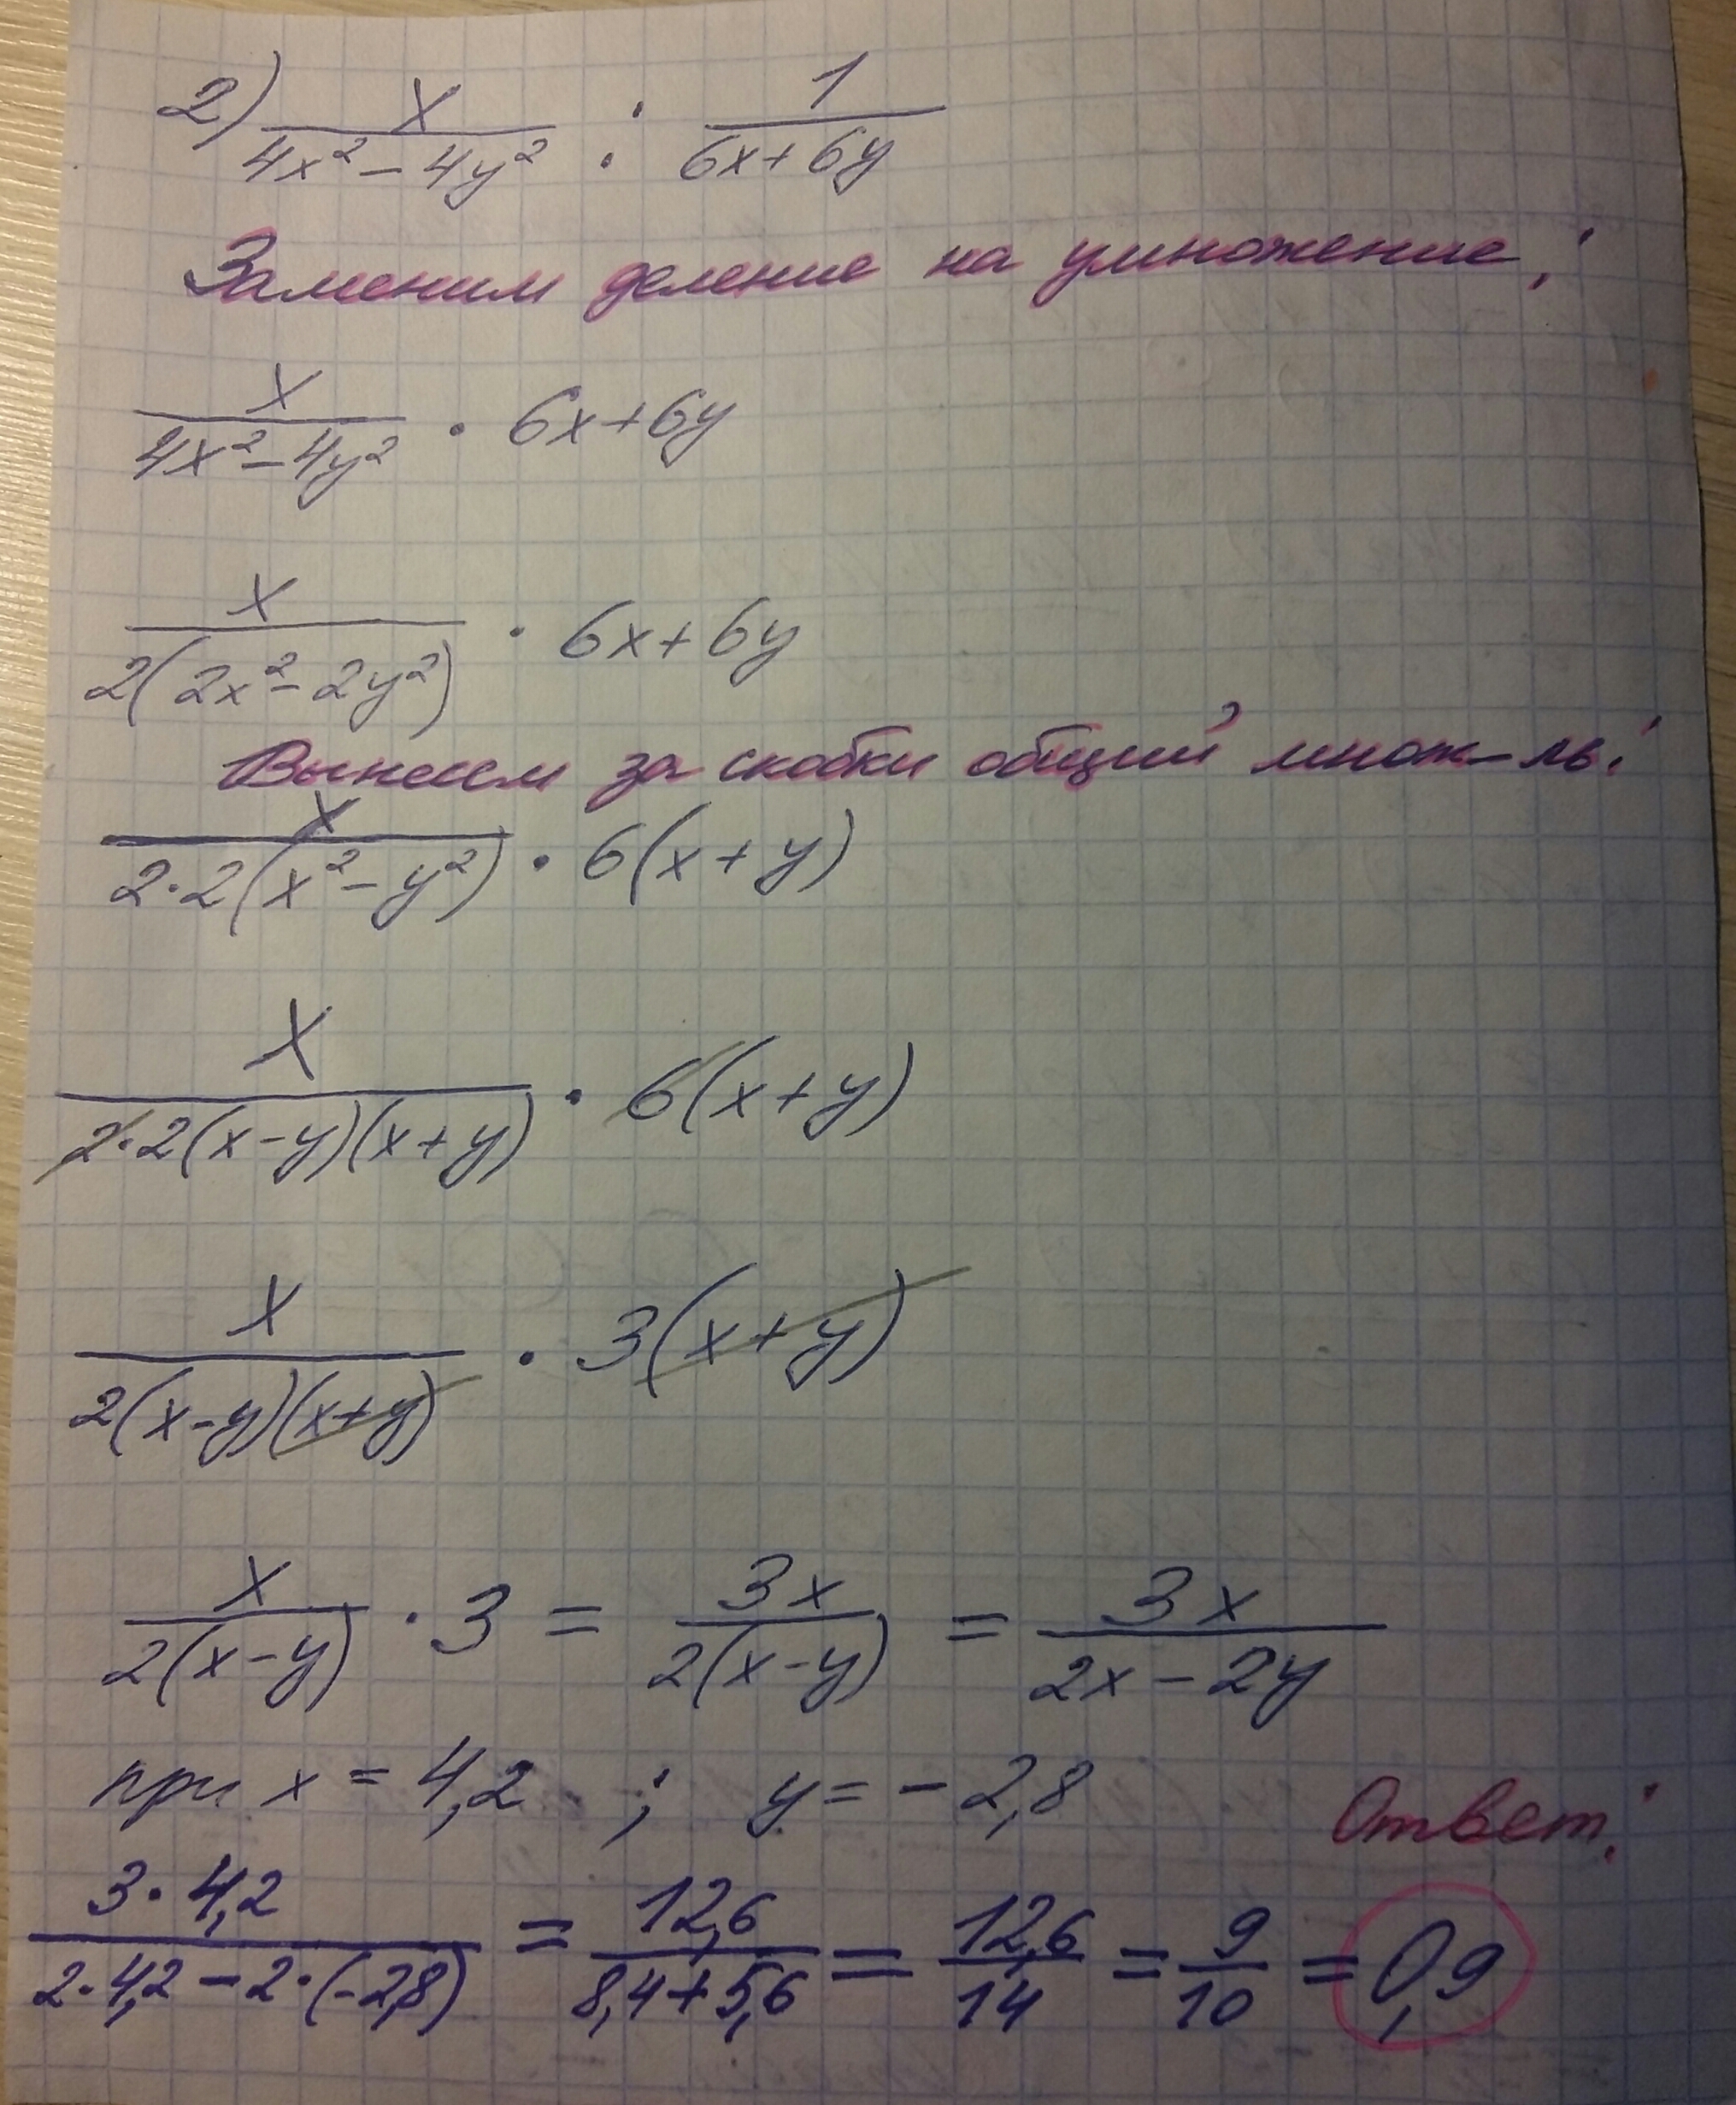 2) x/(4x² - 4y²) : 1/(6x + 6y)
Заменим деление на умножение:
x/(4x² - 4y²) · 6x + 6y
x/(2(2x² - 2y²)) · 6x + 6y
Вынесем за скобки общий множ-ль:
x/(2·2(x² - y²)) · 6(x + y)
x/(2·2(x - y)(x + y)) · 6(x + y)
x/(2(x - y)(x + y)) · 3(x + y)
x/(2(x - y)) · 3 = 3x/(2(x - y)) = 3x/(2x - 2y)
при x = 4,2 ; y = - 2,8
Ответ:
(3 · 4,2)/(2 · 4,2 - 2 · (-2,8)) = 12,6/(8,4 + 5,6) = 12,6/14 = 9/10 = 0,9